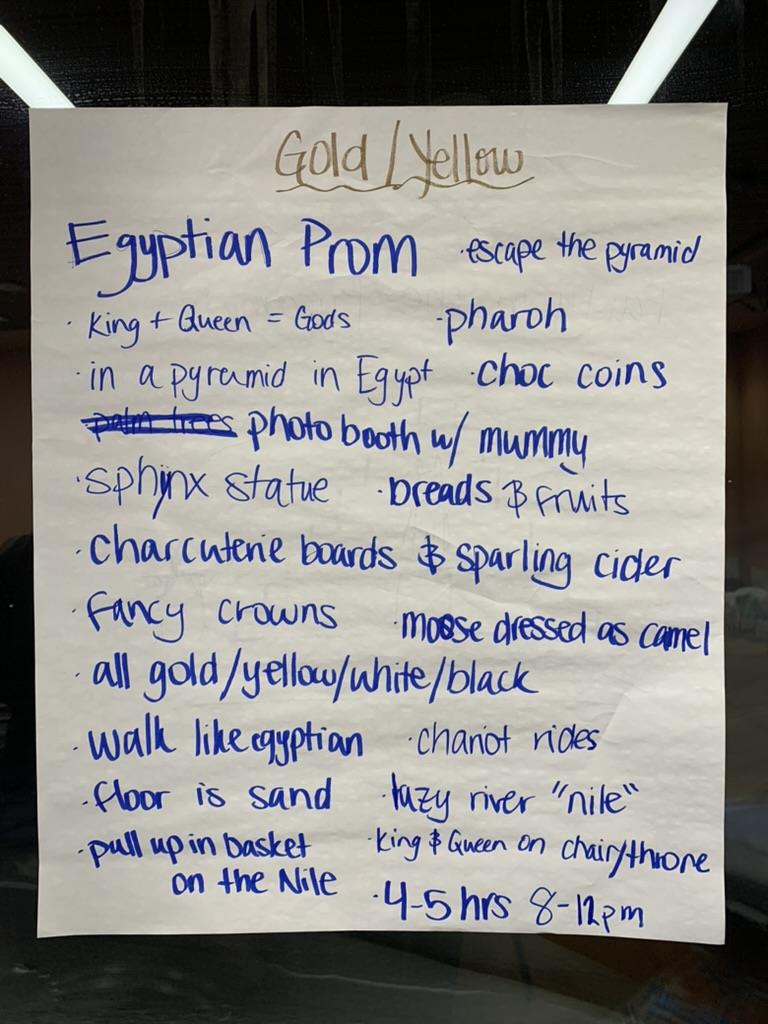 Gold/Yellow
Egyptian Prom · escape the pyramid
· King + Queen = Gods · pharoh
· in a pyramid in Egypt · choc coins
palm trees photo booth w/ mummy
· sphinx statue · breads & fruits
· charcuterie boards & sparling cider
· fancy crowns · moose dressed as camel
· all gold/yellow/white/black
· walk like egyptian · chariot rides
· floor is sand · lazy river "nile"
· pull up in basket · King & Queen on chair/throne
on the Nile · 4-5 hrs 8-12pm